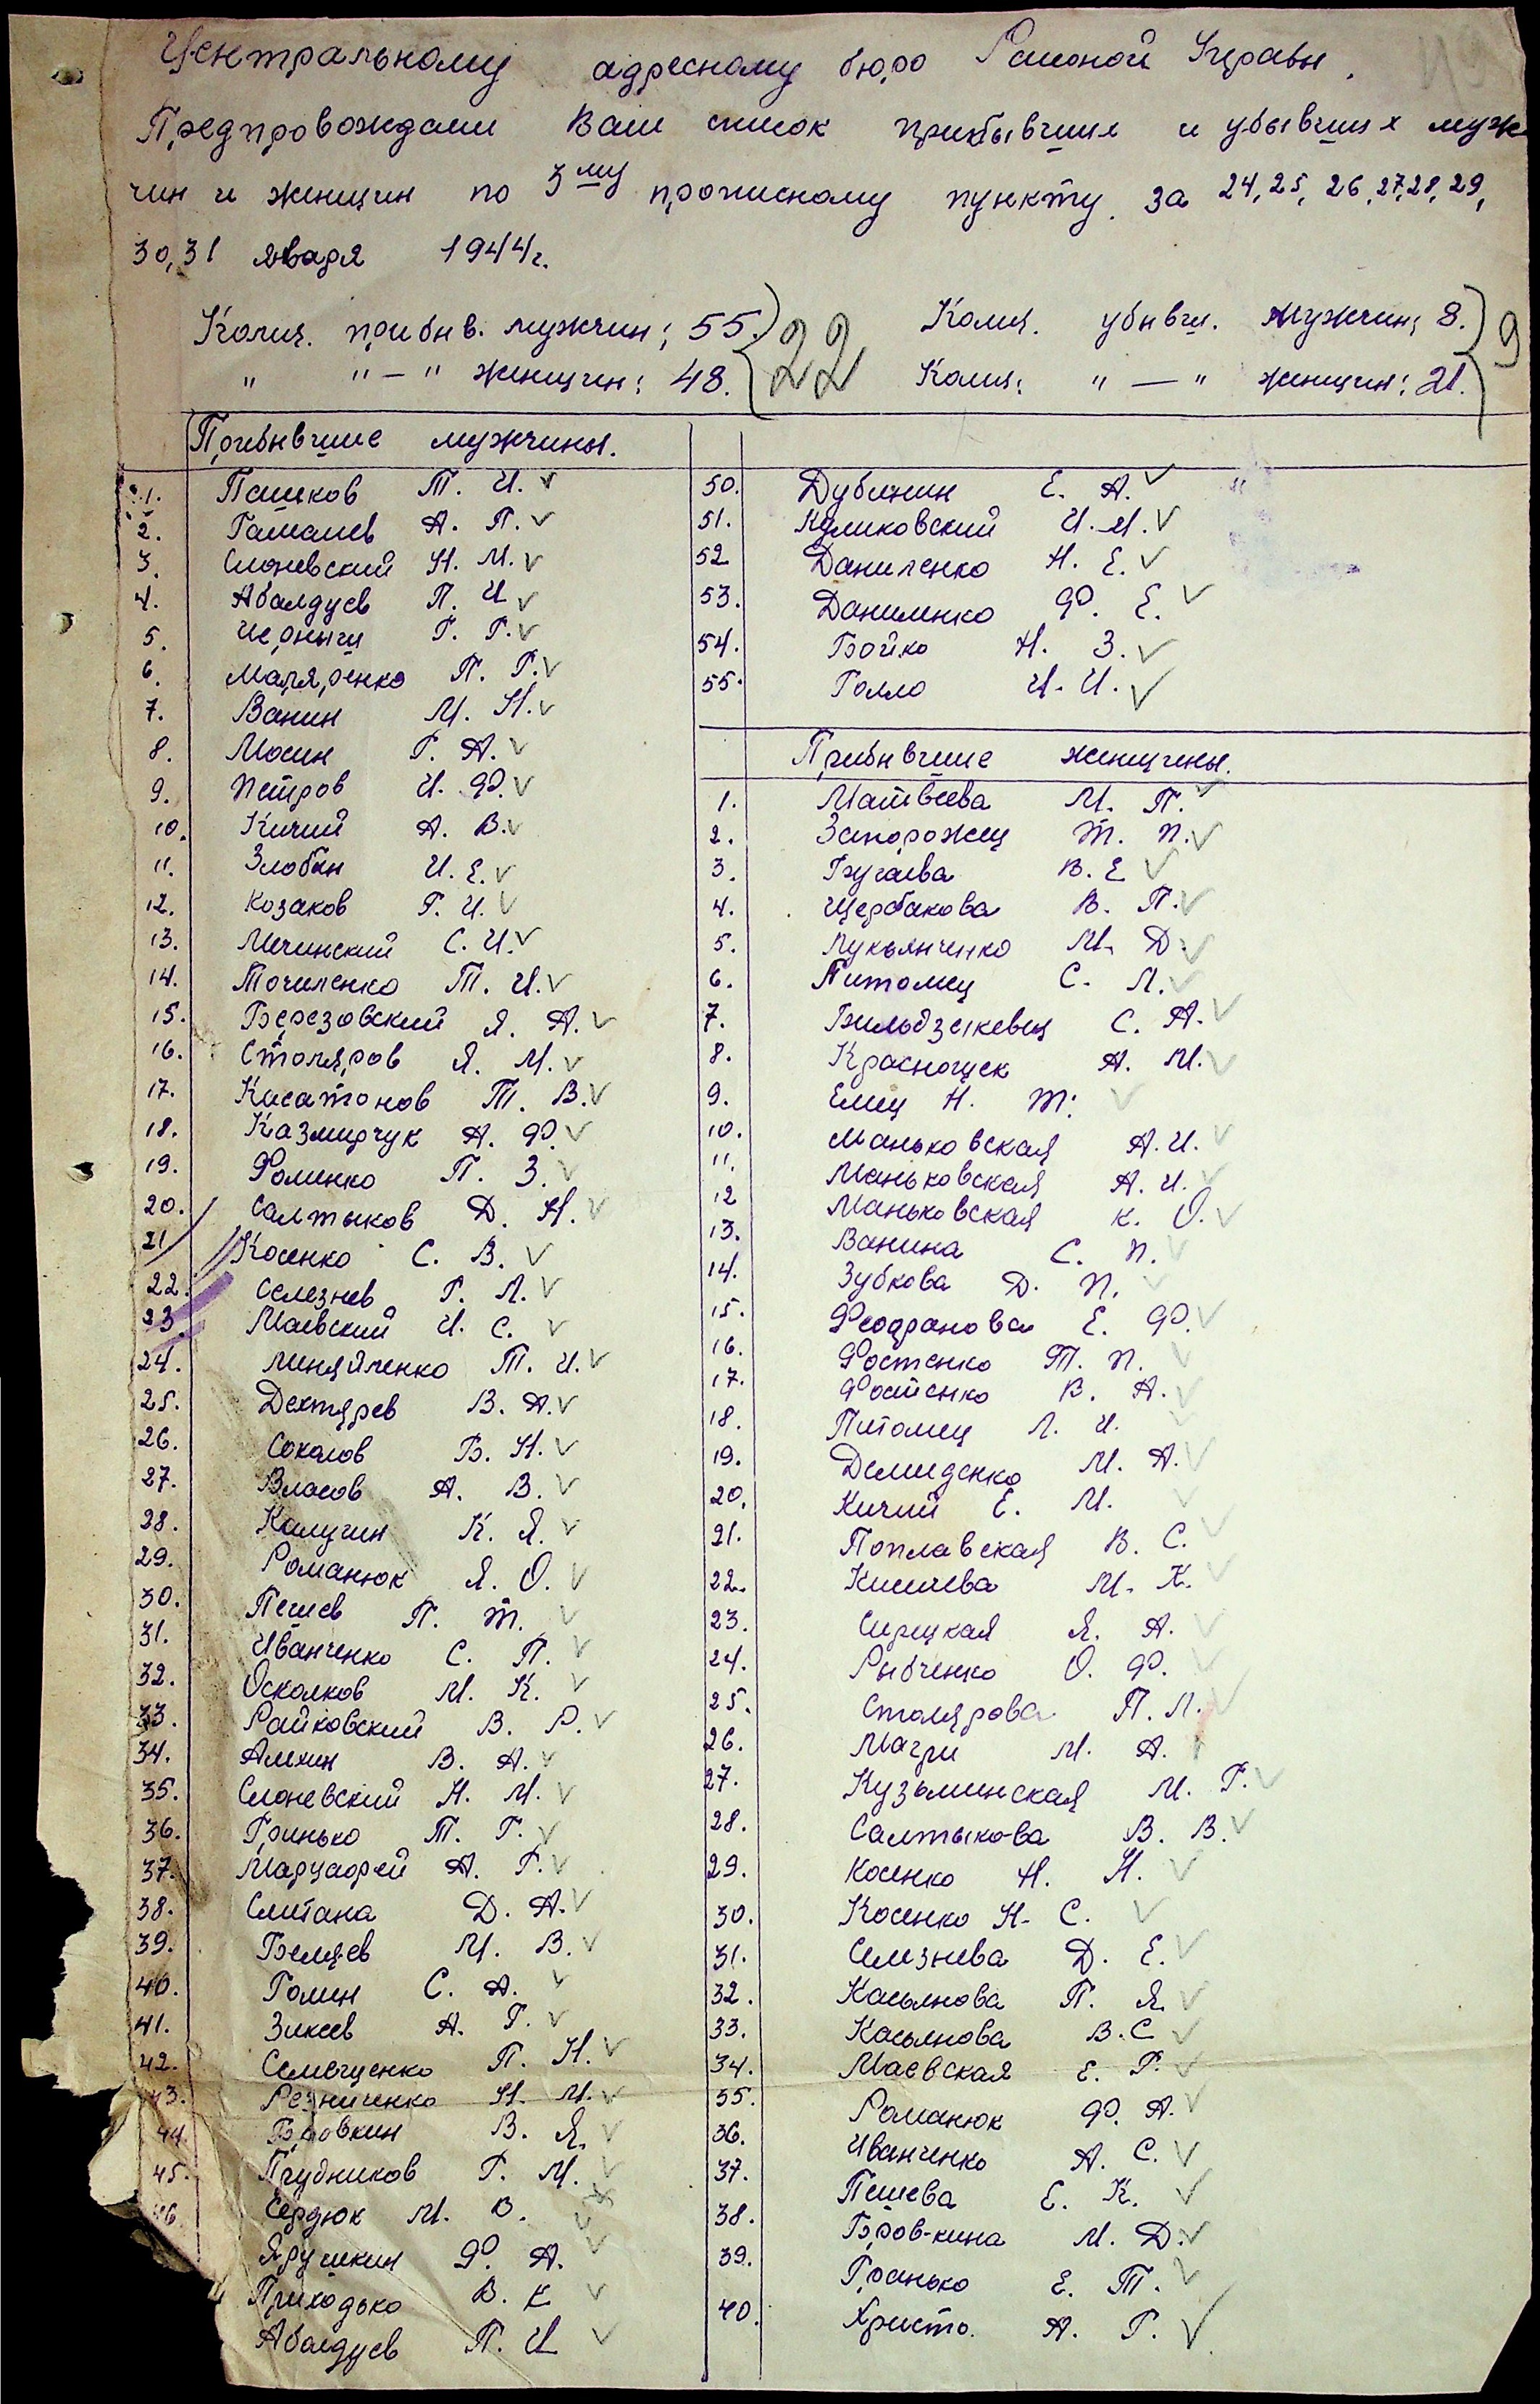 Центральному адресному бюро Районой Управы.
Предпровождаем Ваш список прибывших и убывших муж
чин и женщин по 3му прописному пункту за 24, 25, 26, 27, 28, 29,
30, 31 января 1944 г.
Колич. прибыв. мужчин: 55.
" "—" женщин: 48.
22
Колич. убывш. мужчин: 8.
Колич: "—" женщин: 21.
9
Прибывшие мужчины.
1. Пашков Т. И. ✓
2. Гамалиев А. П. ✓
3. Слоневский Н. М. ✓
4. Абалдуев П. И ✓
5. Черныш Г. Г. ✓
6. Маляренко П. Г. ✓
7. Ванин М. Н. ✓
8. Мосин Г. А. ✓
9. Петров И. Ф. ✓
10. Кичий А. В. ✓
11. Злобин И. Е. ✓
12. Козаков Г. И. ✓
13. Мечинский С. И. ✓
14. Точиленко Т. И. ✓
15. Березовский Я. А. ✓
16. Столяров Я. М. ✓
17. Касатонов Т. В. ✓
18. Казмирчук А. Ф. ✓
19. Фоменко П. З. ✓
20. Салтыков Д. Н. ✓
21 Косенко С. В. ✓
22. Селезнев Г. Л. ✓
23. Маевский И. С. ✓
24. Миняйленко Т. И. ✓
25. Дехтярев В. А. ✓
26. Соколов Б. Н. ✓
27. Власов А. В. ✓
28. Калугин К. Я. ✓
29. Романюк Я. О. ✓
30. Пешев П. Т. ✓
31. Иванченко С. П. ✓
32. Осколков М. К. ✓
33. Райковский В. Р. ✓
34. Алехин В. А. ✓
35. Слоневский Н. М. ✓
36. Гринько Т. Г. ✓
37. А. Г. ✓
38. Сметана Д. А. ✓
39. Беляев М. В. ✓
40. Голин С. А. ✓
41. Зикеев А. Г. ✓
42. Семещенко П. Н. ✓
43. Резниченко Н. М. ✓
44. Бровкин В. Я. ✓
45. Прудников Г. М. ✓
46. Сердюк М. В.
Ярушкин Ф. А. ✓
Приходько В. К ✓
Абалдуев П. И ✓
50. Дубинин Е. А. ✓ "
51. Куликовский И. И. ✓
52 Даниленко Н. Е. ✓
53. Даниленко Ф. Е. ✓
54. Бойко Н. З. ✓
55. Голло И. И. ✓
Прибывшие женщины.
1. Матвеева М. П. ✓
2. Запорожец Т. П. ✓
3. Бугаева В. Е ✓
4. Щербакова В. П. ✓
5. Лукьянченко М. Д. ✓
6. Питомец С. Л. ✓
7. С. А. ✓
8. Красногуск А. М. ✓
9. Емец Н. Т. ✓
10. Маньковская А. И. ✓
11. Маньковская А. И. ✓
12 Маньковская К. О. ✓
13. Ванина С. П. ✓
14. Зубкова Д. П. ✓
15. Феодранова Е. Ф. ✓
16. Фостенко Т. П. ✓
17. Фостенко В. А. ✓
18. Питомец Л. И. ✓
19. Демиденко М. А. ✓
20. Кичий Е. М. ✓
21. Поплавская В. С. ✓
22. Киселева М. К. ✓
23. Сирецкая Я. А. ✓
24. Рыбченко О. Ф. ✓
25. Столярова П. Л. ✓
26. Магри М. А.
27. Кузьминская М. Г. ✓
28. Салтыкова В. В. ✓
29. Косенко Н. Н. ✓
30. Косенко Н. С. ✓
31. Селезнева Д. Е. ✓
32. Касьянова П. Я. ✓
33. Касьянова В. С ✓
34. Маевская Е. Г. ✓
35. Романюк Ф. А. ✓
36. Иванченко А. С. ✓
37. Пешева Е. К. ✓
38. Бров-кина М. Д. ✓
39. Гранько Е. Т. ✓
40. Христо. А. Г. ✓